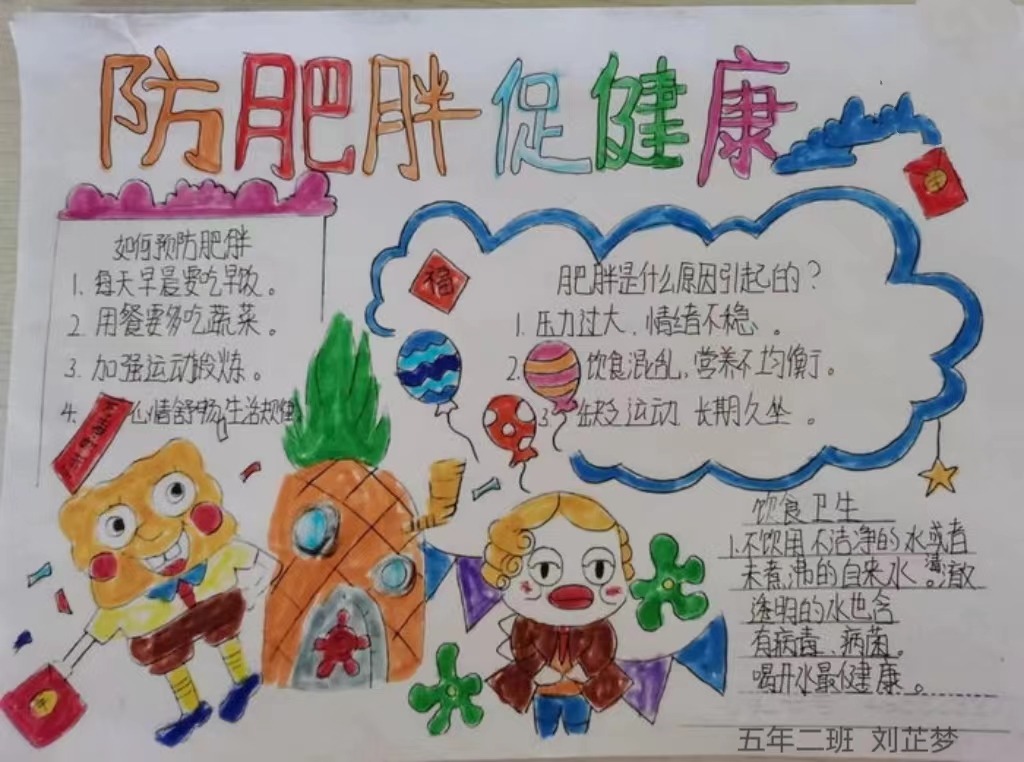 防肥胖促健康
如何预防肥胖
1. 每天早晨要吃早饭。
2. 用餐要多吃蔬菜。
3. 加强运动锻炼。
4. 心情舒畅,生活规律
肥胖是什么原因引起的?
1. 压力过大,情绪不稳。
2. 饮食混乱,营养不均衡。
3. 缺乏运动 长期久坐。
福
饮食卫生
1.不饮用不洁净的水或者
未煮沸的自来水。清澈
透明的水也含
有病毒、病菌。
喝开水最健康。
五年二班 刘芷梦